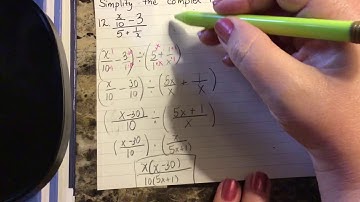 Simplify the complex
12. (x/10 - 3)/(5 + 1/x)
x/10 - 3 ÷ (5 + 1/x)
(x/10 - 30/10) ÷ (5x/x + 1/x)
(x-30/10) ÷ (5x+1/x)
(x-30/10) · (x/5x+1)
x(x-30)/10(5x+1)